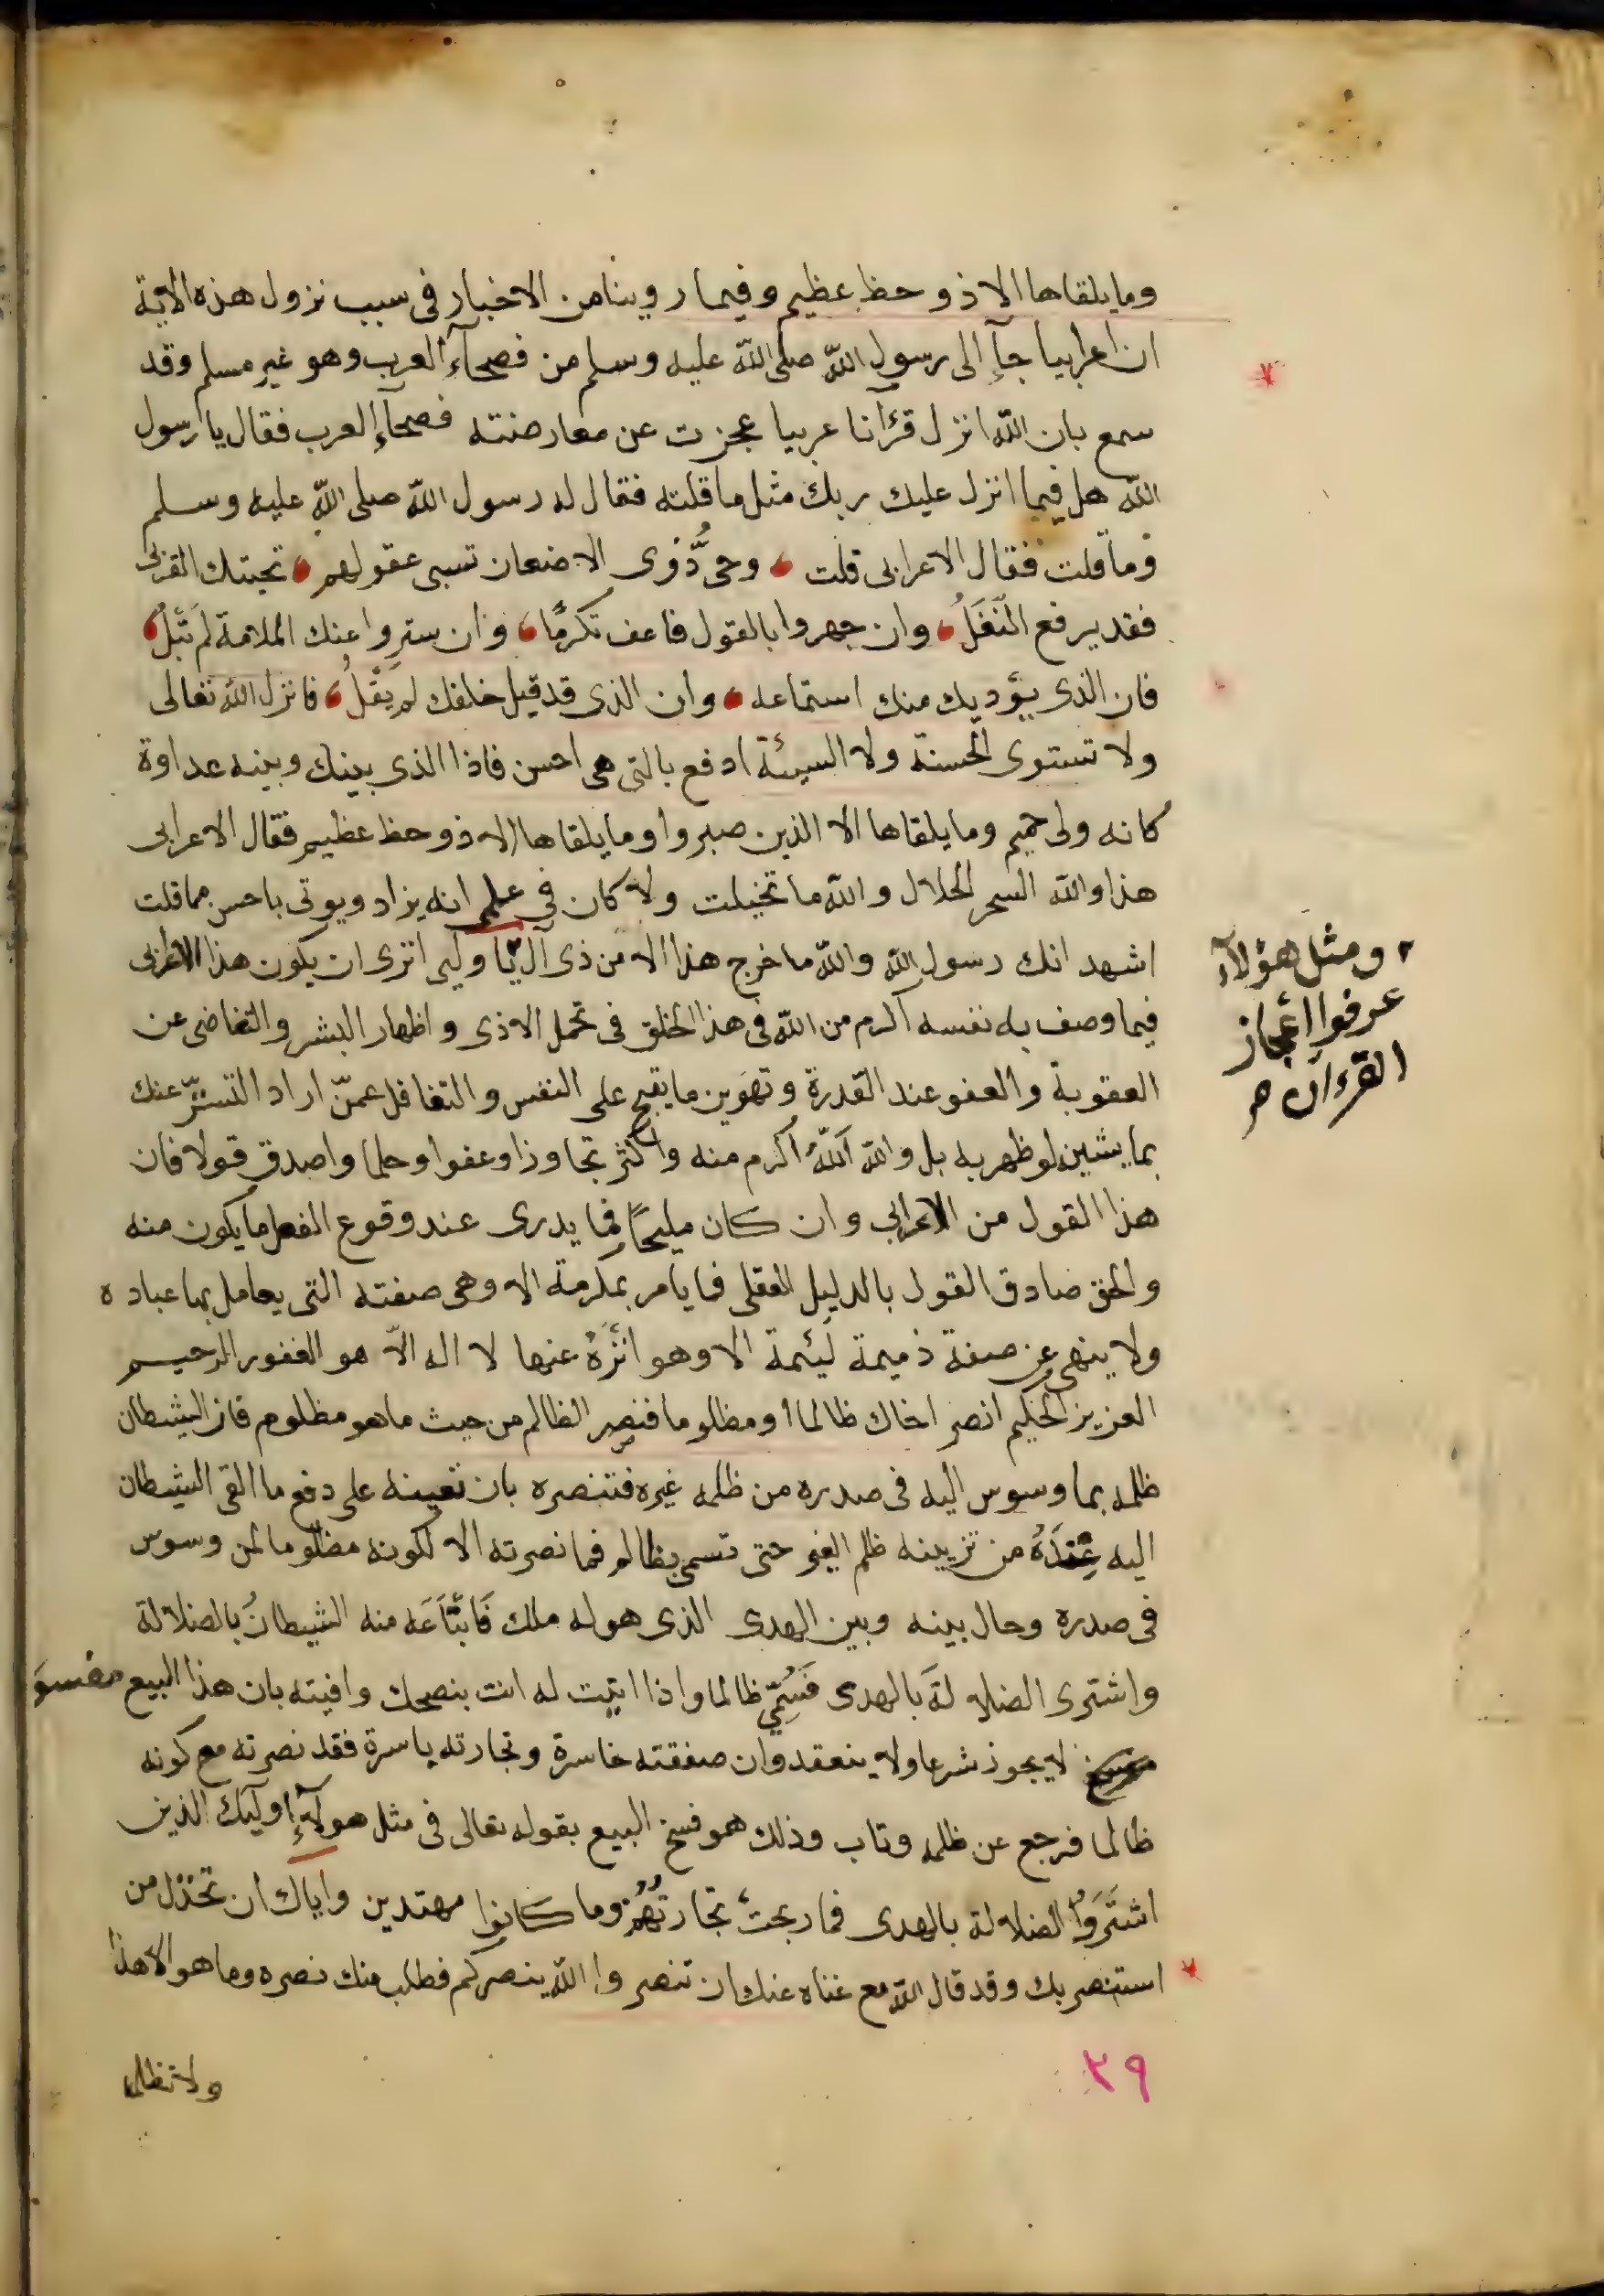 وما يلقاها الا ذو حظ عظيم وفيما روينا من الاخبار فى سبب نزول هذه الاية
ان اعرابيا جآء الى رسول الله صلى الله عليه وسلم من فصحآء العرب وهو غير مسلم وقد
سمع بان الله انزل قرآنا عربيا عجزت عن معارضته فصحآء العرب فقال يا رسول
الله هل فيما انزل عليك ربك مثل ما قلته فقال له رسول الله صلى الله عليه وسلم
وما قلت فقال الاعرابى قلت وحىّ ذوى الاضعان تسبى عقولهم تحيتك القربى
فقد يرفع النَغَلُ وان جهروا بالقول فاعف تكرمًا وان ستروا عنك الملامة لم تبل
فان الذى يؤديك منك استماعه وان الذى قد قيل خلفك لم يقل فانزل الله تعالى
ولا تستوى الحسنة ولا السيئة ادفع بالتى هى احسن فاذا الذى بينك وبينه عداوة
كانه ولى حميم وما يلقاها الا الذين صبروا وما يلقاها الا ذو حظ عظيم فقال الاعرابى
هذا والله السحر الحلال والله ما تخيلت ولا كان في علمى انه يزاد ويوتى باحسن مما قلت
اشهد انك رسول الله والله ما خرج هذا الا من ذى ال يا وليى اترى ان يكون هذا الاعرابى
فيما وصف به نفسه اكرم من الله فى هذا الخلق فى تحمل الاذى واظهار البشر والتغاضى عن
العقوبة والعفو عند القدرة وتهوين ما يقبح على النفس والتغافل عمّن اراد التستّر عنك
بما يشين لو ظهر به بل والله اَللّه اكرم منه واكثر تجاوزا وعفوا وحلما واصدق قولا فان
هذا القول من الاعرابى وان كان مليحًا فما يدرى عند وقوع الفعل ما يكون منه
والحق صادق القول بالدليل العقلى فما يامر بمكرمة الا وهى صفته التى يعامل بها عباده
ولا ينهى عن صفة ذميمة لئيمة الا وهو انزَهُ عنها لا اله الاّ هو الغفور الرحيم
العزيز الحكيم انصر اخاك ظالما او مظلوما فنصر الظالم من حيث ما هو مظلوم فان الشيطان
ظلمه بما وسوس اليه فى صدره من ظلمه غيره فتنصره بان تعينه على دفع ما القى الشيطان
اليه عِنْدَهُ من تزيينه ظلم الغير حتى تسمى بظالم فما نصرته الا لكونه مظلوما لمن وسوس
فى صدره وحال بينه وبين الهدى الذى هو له ملك فَابْتَاعَه منه الشيطانُ بالضلالة
واشترى الضلالةَ بالهدى فَسُمِّى ظالما واذا اتيت له انت بنصحك وافيته بان هذا البيع مفسوخ
لا يجوز شرعا ولا ينعقد وان صفقته خاسرة وتجارته ياسرة فقد نصرته مع كونه
ظالما فرجع عن ظلمه وتاب وذلك هو فسخ البيع بقوله تعالى فى مثل هولآء اوليك الذين
اشترَوُا الضلالة بالهدى فما ربحت تجارتُهُم وما كانوا مهتدين واياك ان تخذل من
استنصر بك وقد قال الله مع غناه عنك ان تنصروا الله ينصركم فطلب منك نصره وما هو الا هذا
ولا تظلم
٣٩
ومثل هؤلآء
عرفوا اعجاز
القرءان